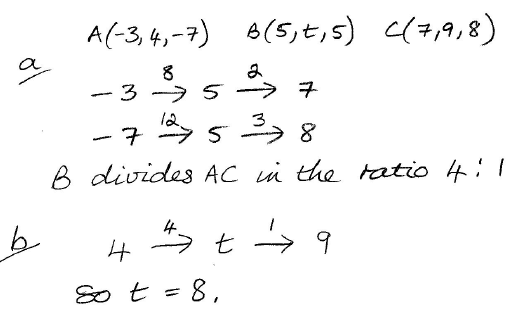 A(-3,4,-7) B(5,t,5) C(7,9,8)
a
-3 →8 5 →2 7
-7 →12 5 →3 8
B divides AC in the ratio 4:1
b
4 →4 t →1 9
So t = 8.